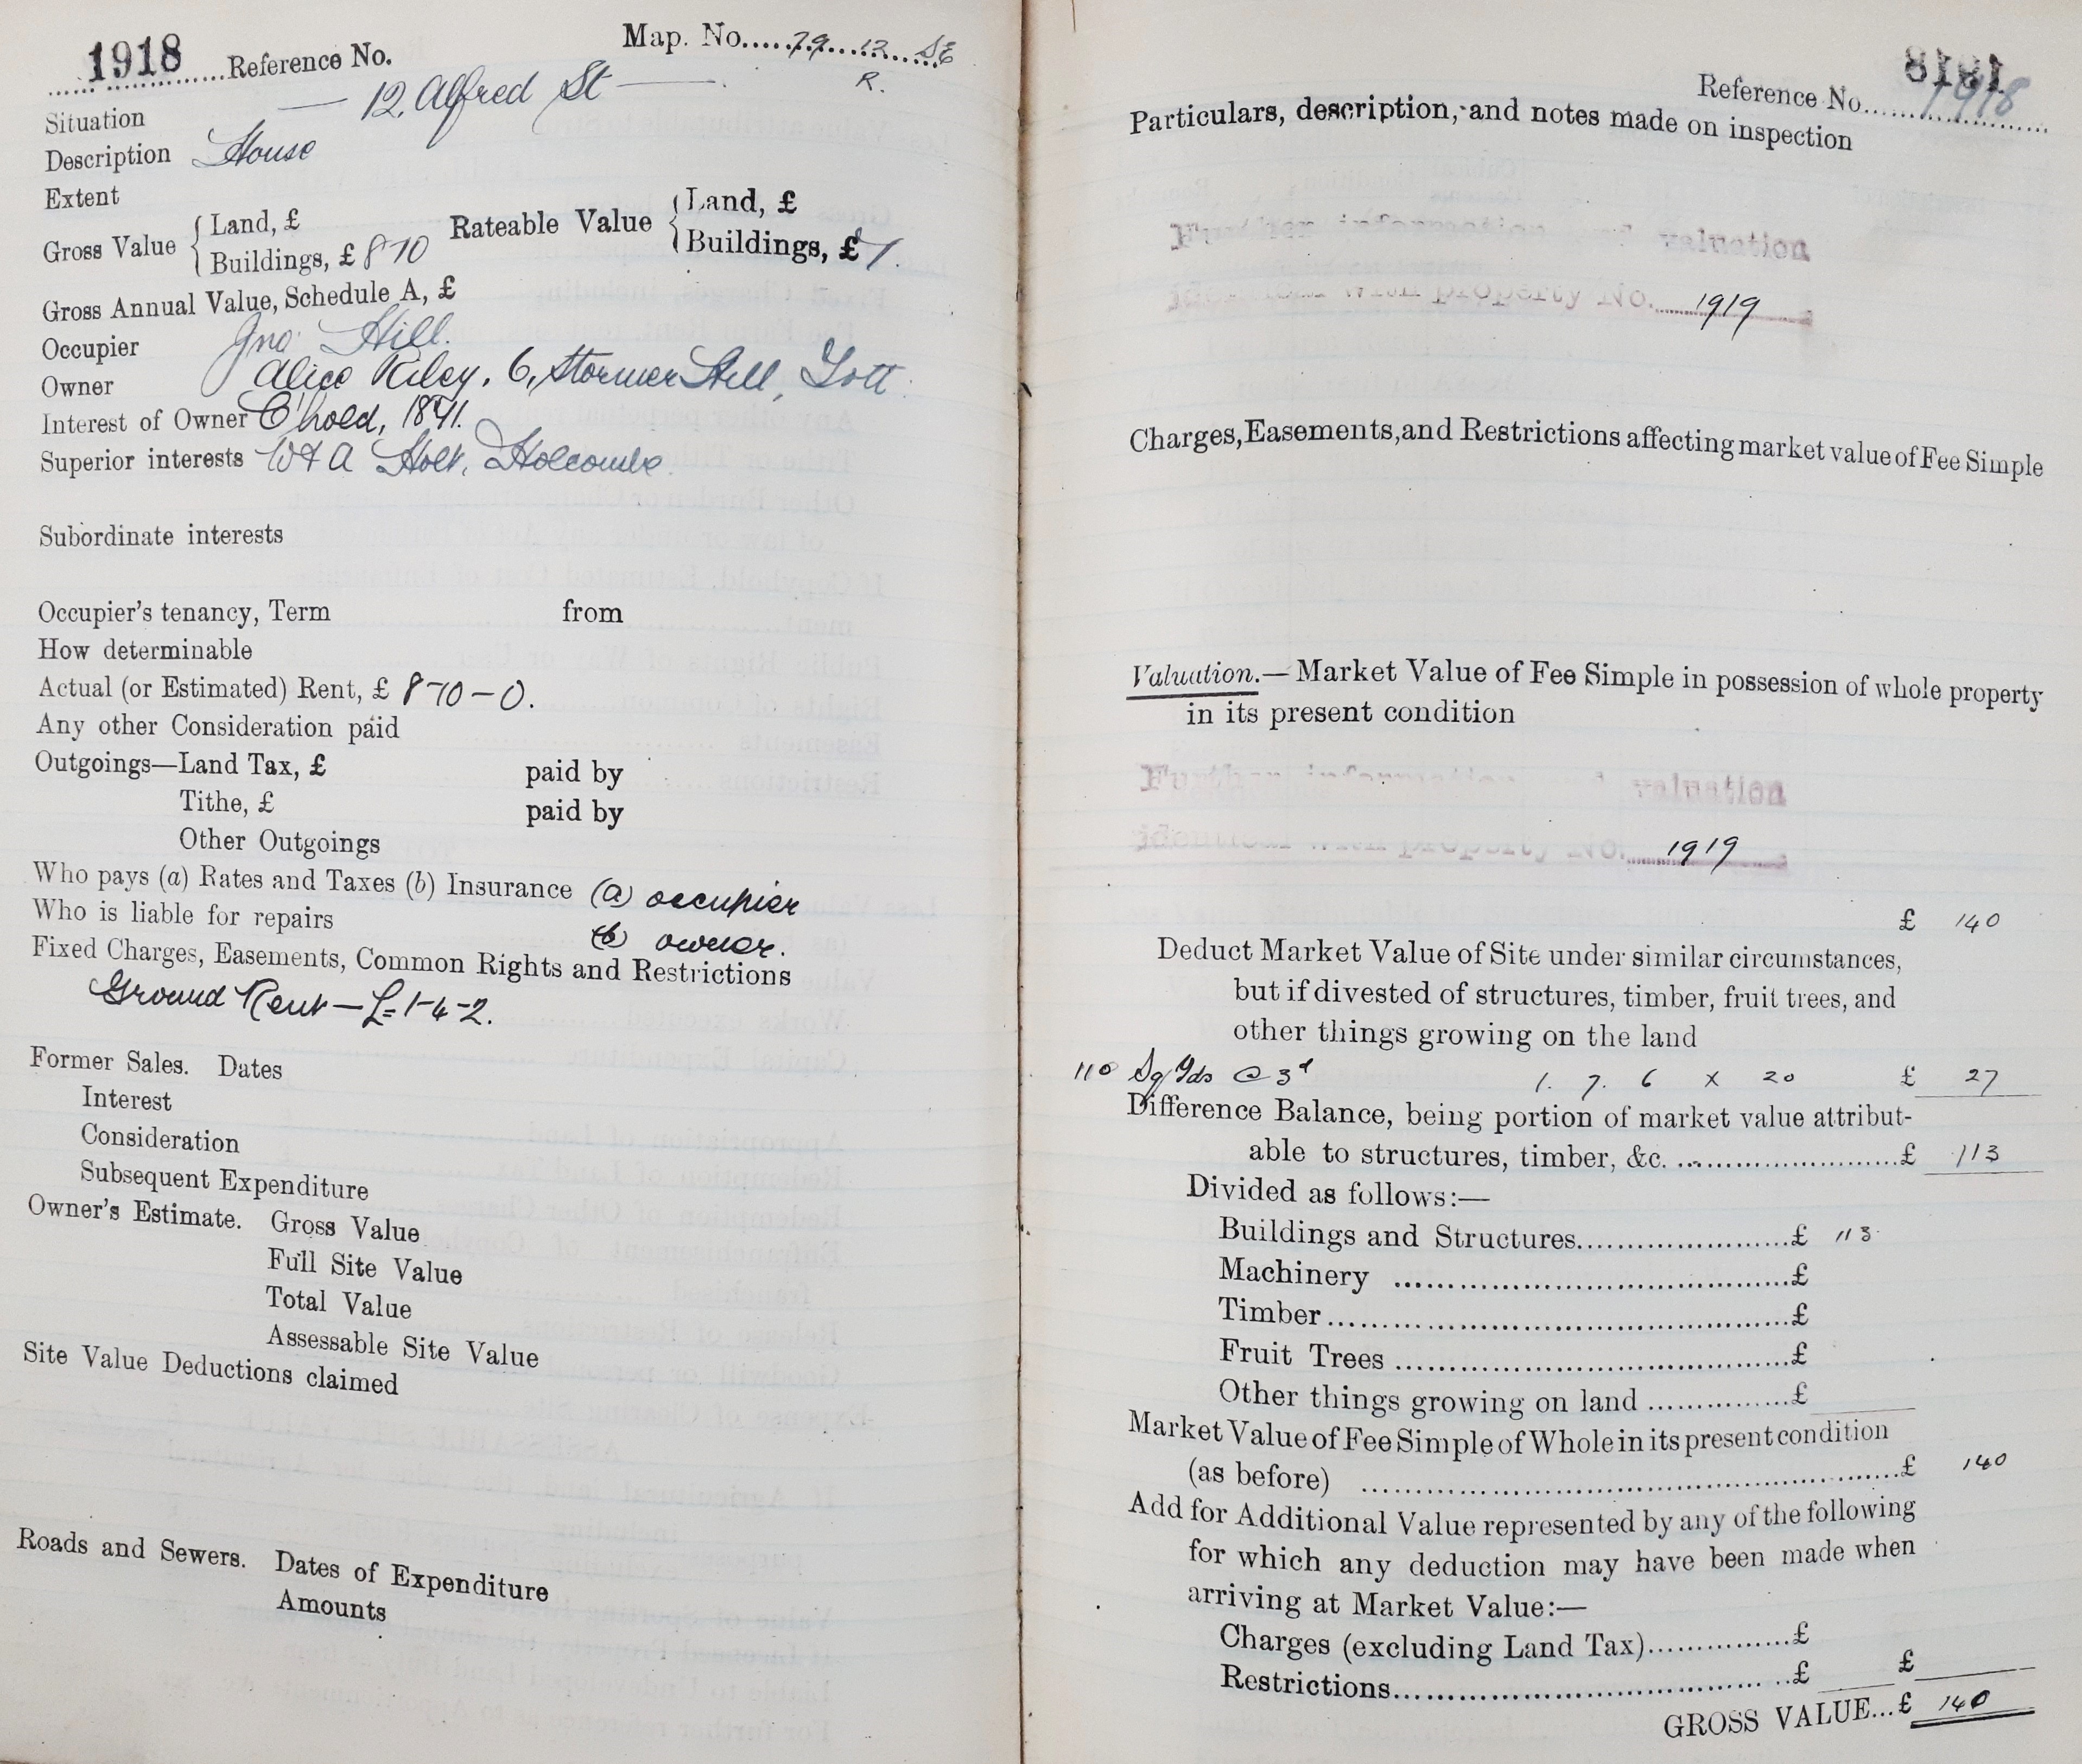 1918 Reference No.
Map. No. 79 12 SE
R.
Situation — 12, Alfred St —
Description House
Extent
Gross Value { Land, £
Buildings, £ 8 10
Rateable Value { Land, £
Buildings, £ 7.
Gross Annual Value, Schedule A, £
Occupier Jno. Hill.
Owner Alice Riley, 6, Stormer Hill, Tott.
Interest of Owner C'hold, 1841.
Superior interests W & A Holt, Holcombe.
Subordinate interests
Occupier's tenancy, Term from
How determinable
Actual (or Estimated) Rent, £ 8-10-0.
Any other Consideration paid
Outgoings—Land Tax, £ paid by
Tithe, £ paid by
Other Outgoings
Who pays (a) Rates and Taxes (b) Insurance (a) occupier
Who is liable for repairs (b) owner.
Fixed Charges, Easements, Common Rights and Restrictions
Ground Rent — £1-4-2.
Former Sales. Dates
Interest
Consideration
Subsequent Expenditure
Owner's Estimate. Gross Value
Full Site Value
Total Value
Assessable Site Value
Site Value Deductions claimed
Roads and Sewers. Dates of Expenditure
Amounts
Reference No. 1918
Particulars, description, and notes made on inspection
Further information and valuation
identical with property No. 1919
Charges, Easements, and Restrictions affecting market value of Fee Simple
Valuation.—Market Value of Fee Simple in possession of whole property
in its present condition
Further information and valuation
identical with property No. 1919
£ 140
Deduct Market Value of Site under similar circumstances,
but if divested of structures, timber, fruit trees, and
other things growing on the land
110 Sq Yds @ 3d 1. 7. 6 x 20 £ 27
Difference Balance, being portion of market value attribut-
able to structures, timber, &c. £ 113
Divided as follows:—
Buildings and Structures £ 113
Machinery £
Timber £
Fruit Trees £
Other things growing on land £
Market Value of Fee Simple of Whole in its present condition
(as before) £ 140
Add for Additional Value represented by any of the following
for which any deduction may have been made when
arriving at Market Value:—
Charges (excluding Land Tax) £
Restrictions £ £
GROSS VALUE... £ 140